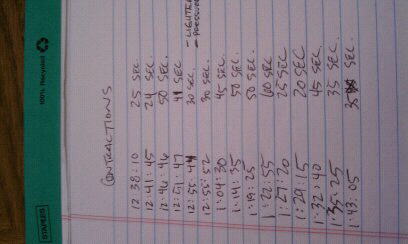 STAPLES
100% Recycled
CONTRACTIONS
12:38:10 25 SEC.
12:41:45 24 SEC.
12:46:46 50 SEC.
12:51:47 41 SEC
12:55:47 30 SEC. - LIGHTER
12:55:52 30 SEC. - PRESSURE
1:04:30 45 SEC.
1:14:35 50 SEC.
1:19:25 50 SEC.
1:22:55 60 SEC.
1:27:20 25 SEC
1:29:15 20 SEC
1:32:40 45 SEC.
1:35:25 35 SEC.
1:43:05 35 SEC.